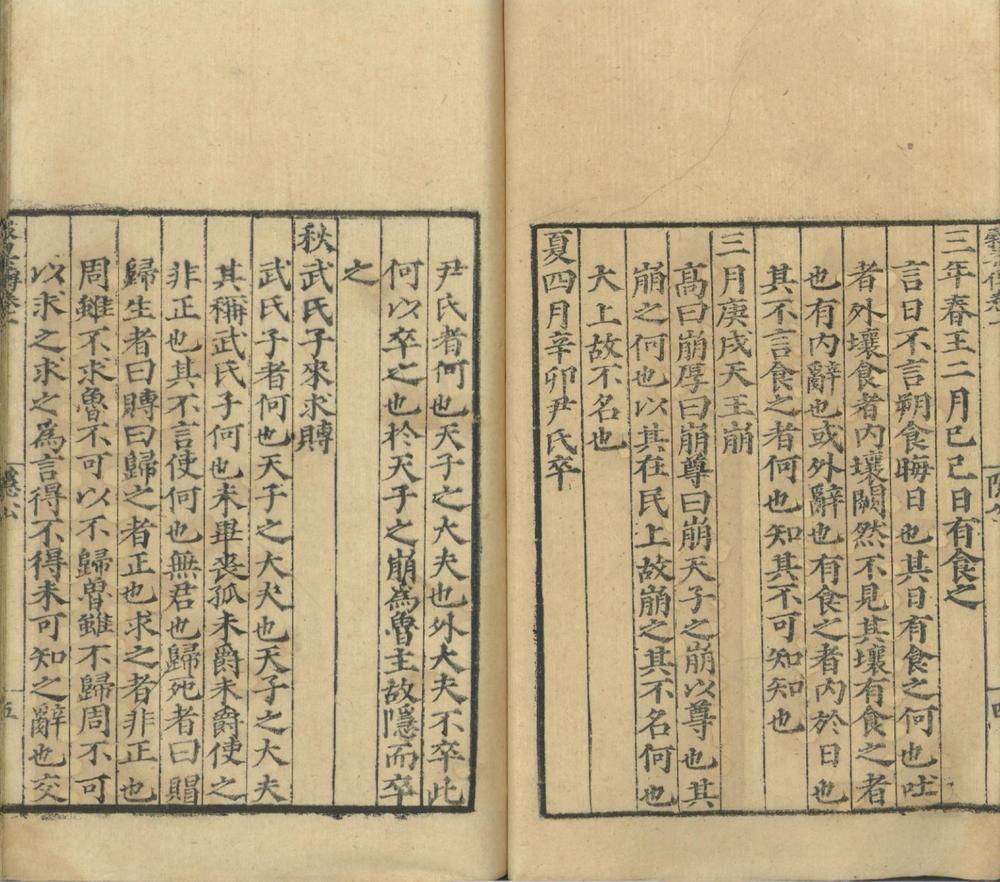 三年春王二月己巳日有食之
言日不言朔食晦日也其日有食之何也吐
者外壤食者内壤闕然不見其壤有食之者
也有内辭也或外辭也有食之者内於日也
其不言食之者何也知其不可知知也
三月庚戌天王崩
高曰崩厚曰崩尊曰崩天子之崩以尊也其
崩之何也以其在民上故崩之其不名何也
大上故不名也
夏四月辛卯尹氏卒
尹氏者何也天子之大夫也外大夫不卒此
何以卒之也於天子之崩為魯主故隱而卒
之
秋武氏子來求賻
武氏子者何也天子之大夫也天子之大夫
其稱武氏子何也未畢喪孤未爵未爵使之
非正也其不言使何也無君也歸死者曰賵
歸生者曰賻曰歸之者正也求之者非正也
周雖不求魯不可以不歸魯雖不歸周不可
以求之求之為言得不得未可知之辭也交